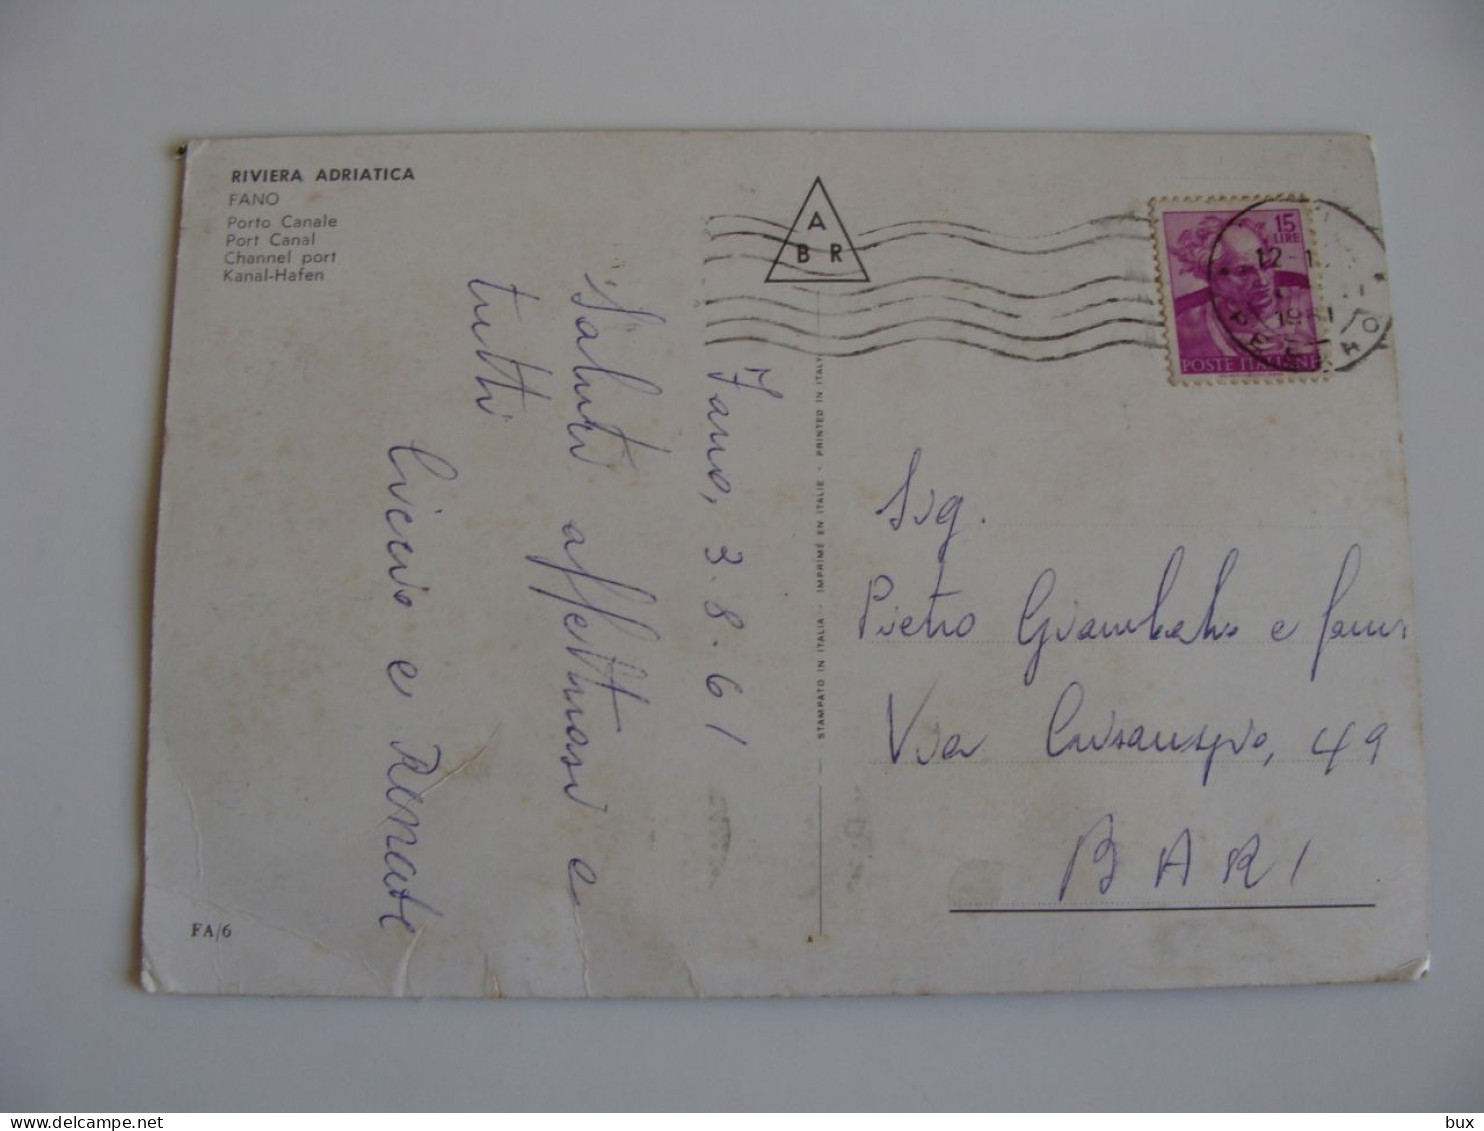 RIVIERA ADRIATICA
FANO
Porto Canale
Port Canal
Channel port
Kanal-Hafen
A
B R
15
LIRE
POSTE ITALIANE
12-1
1961
Fano, 3.8.61
Saluti affettuosi e
tutti
e Renate
STAMPATO IN ITALIA - IMPRIMÉ EN ITALIE - PRINTED IN ITALY
Sig.
Pietro e fam
Via 49
BARI
FA/6
bux